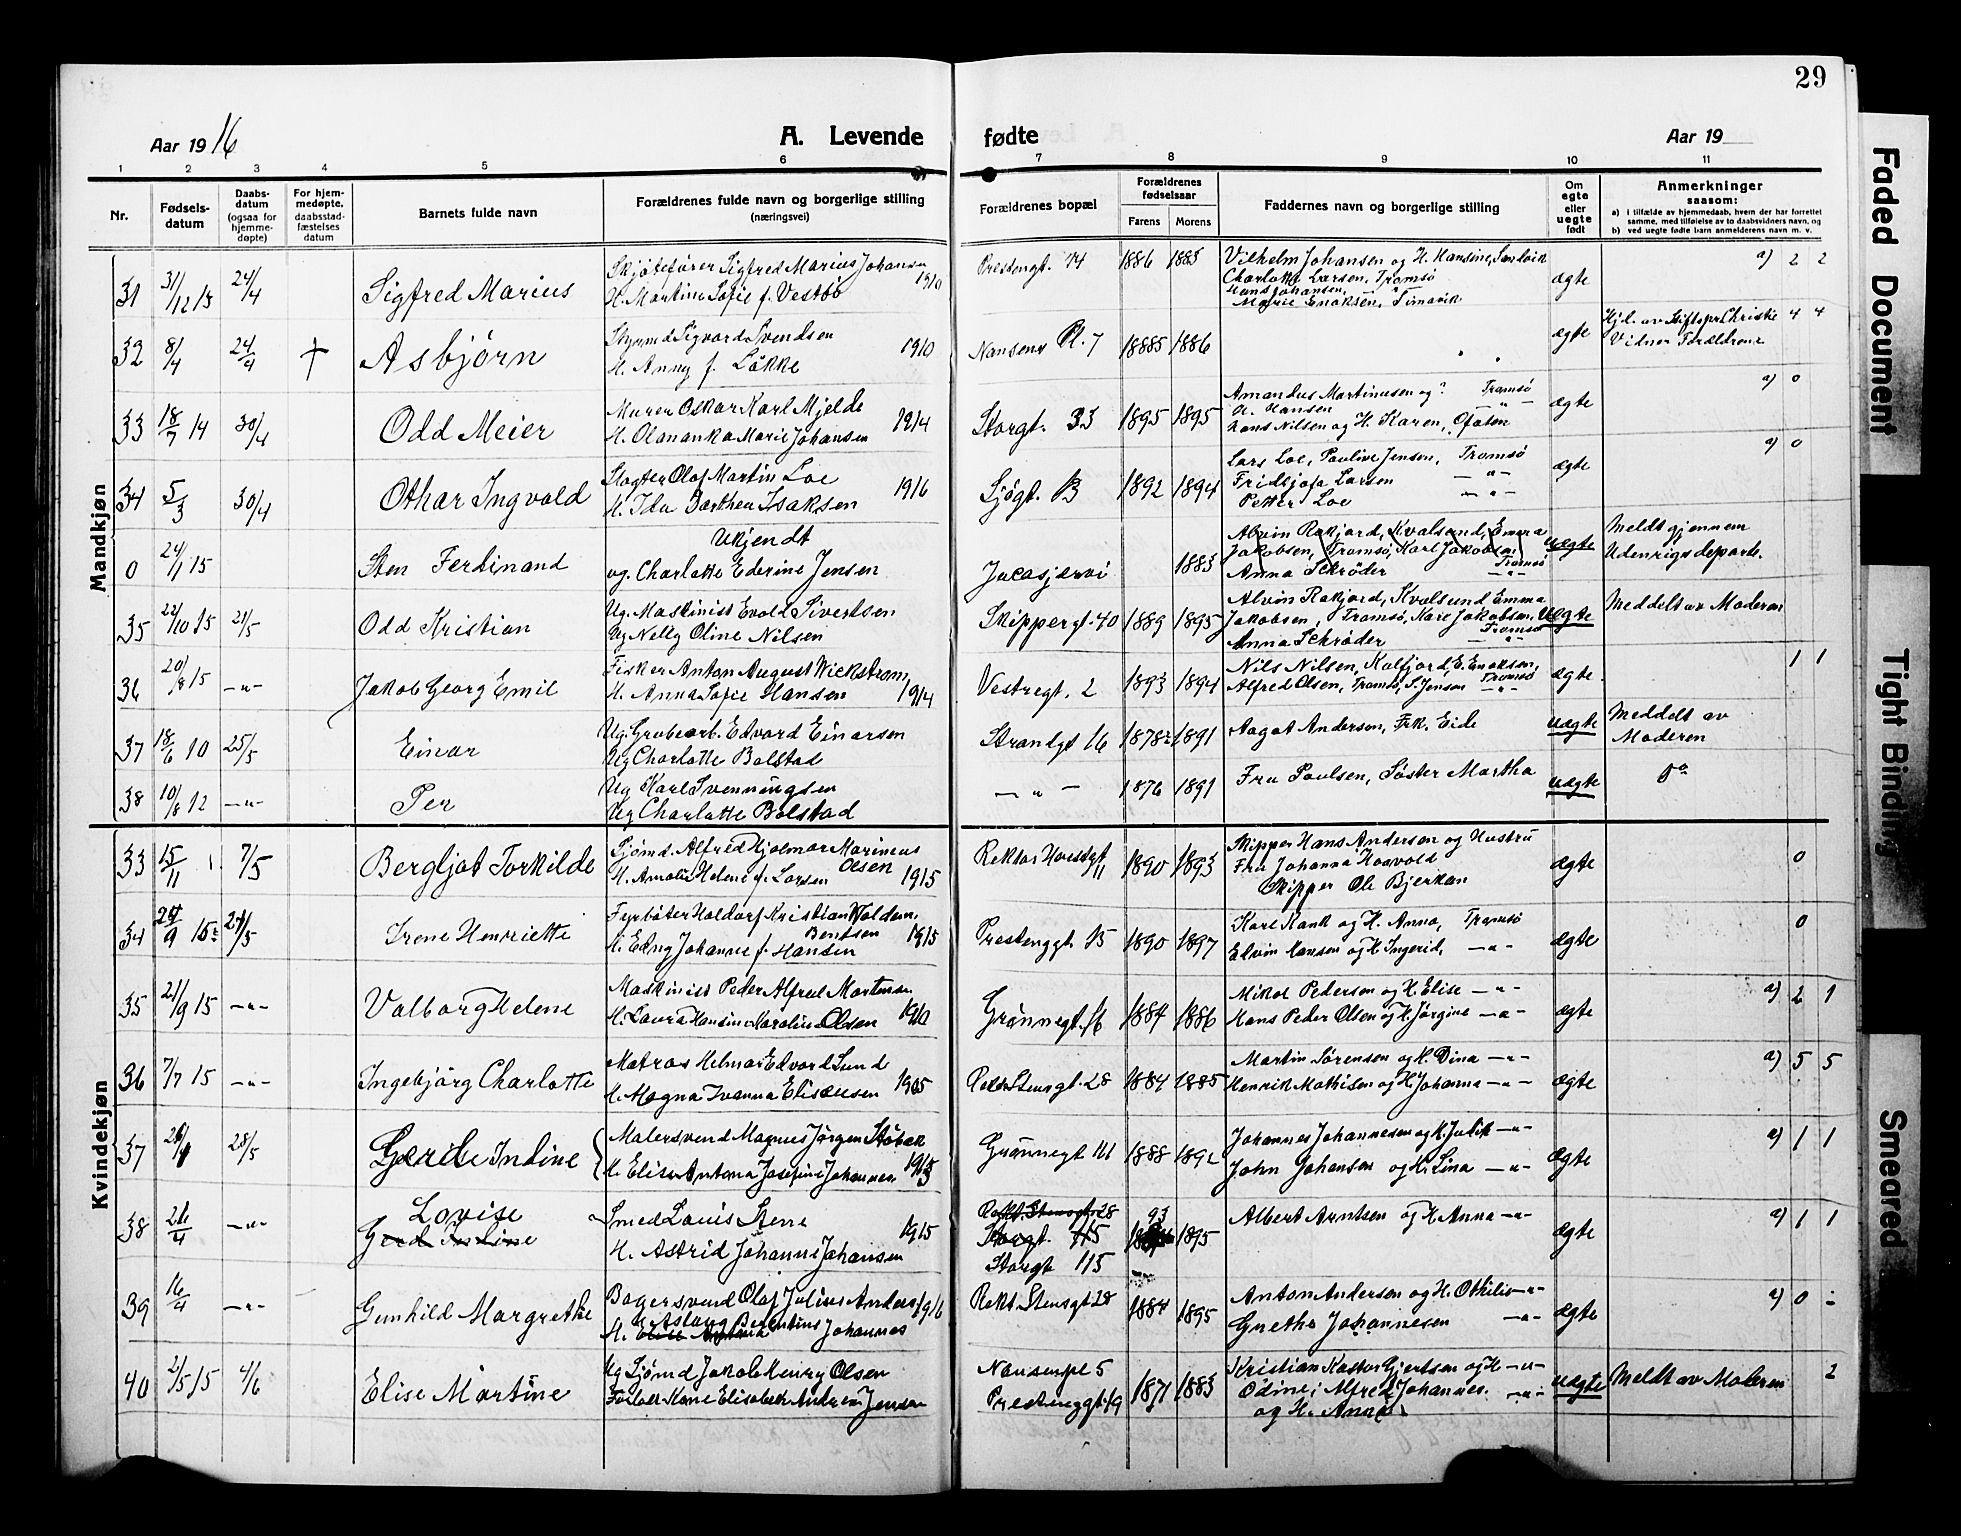 29
Aar 1916
A. Levende fødte
Aar 19
1 2 3 4 5 6 7 8 9 10 11
Nr.
Fødsels-
datum
Daabs-
datum
(ogsaa for
hjemme-
døpte)
For hjem-
medøpte,
daabsstad-
fæstelses
datum
Barnets fulde navn
Forældrenes fulde navn og borgerlige stilling
(næringsvei)
Forældrenes bopæl
Forældrenes
fødselsaar
Farens Morens
Faddernes navn og borgerlige stilling
Om
egte
eller
uegte
født
Anmerkninger
saasom:
a) i tilfælde av hjemmedaab, hvem der har forrettet
samme, med tilføielse av to daabsvidners navn, og
b) ved uegte fødte barn anmelderens navn m. v.
Mandkjøn
31 31/12 15 24/4 Sigfred Marius
Skjøtefører Sigfred Marius Johansen
H. Martine Sofie f. Vestbø 1910
Prestengt. 14 1886 1883
Vilhelm Johansen og H. Hansine, Sandvik
Charlotte Larsen, Tromsø
Hans Johansen,
Marie Enoksen, Simavik
ægte a) 2 2
32 8/4 24/4 † Asbjørn
Styrmd Sigvard Svendsen 1910
H. Anny f. Løkke
Nansens Pl. 7 1885 1886
ægte
Hjd. av Stiftspr Christie 4 4
Vidner Forældrene
33 18/7 14 30/4 Odd Meier
Murer Oskar Karl Mjelde 1914
H. Olananka Marie Johansen
Storgt. 33 1895 1895
Amandus Martinusen og? Tromsø
H. Hansen — " —
Hans Nilsen og H. Karen, Ofoten
ægte a) 0
34 5/3 30/4 Othar Ingvald
Slagter Olaf Martin Loe 1916
H. Ida Dorthea Isaksen
Sjøgt. B 1892 1894
Lars Loe, Pauline Jensen, Tromsø
Fridtjofa Larsen — " —
Petter Loe — " —
ægte a) 0
0 24/1 15 Sten Ferdinand
Ukjendt
ug. Charlotte Ederine Jensen
Jucasjærvi 1883
Alvin Rakfjord, Kvalsund, Emma
Jakobsen, Tromsø, Karl Jakobsen
Anna Schrøder Tromsø — " —
uægte
Meldt gjennem
Udenrigsdepart.
35 22/10 15 21/5 Odd Kristian
Ug. Maskinist Evald Sivertsen
Ug Nelly Oline Nilsen
Skippergt. 40 1889 1895
Alvin Rakfjord, Kvalsund Emma
Jakobsen, Tromsø, Karl Jakobsen, Tromsø
Anna Schrøder — " —
Uægte
Meddelt av Moderen
36 20/8 15 — " — Jakob Georg Emil
Fisker Anton August Wickstrøm
H. Anna Sofie Hansen 1914
Vestregt. 2 1893 1894
Nils Nilsen, Kalfjord, E. Enoksen,
Alfred Olsen, Tromsø, S. Jensen Tromsø — " —
ægte 1 1
37 18/6 10 25/5 Einar
Ug. Grubearb. Edvard Einarsen
Ug Charlotte Bolstad
Strandgt 16 1878? 1891
Aagot Andersen, Frk. Eide
uægte
Meddelt av
Moderen
38 10/8 12 — " — Per
Ug Karl Svenningsen
Ug Charlotte Bolstad
— " — 1876 1891
Fru Paulsen, Søster Martha
uægte do
Kvindekjøn
33 15/11 7/5 Bergljot Torkilde
Sjømd. Alfred Hjalmar Marinius
Olsen
H. Amalie Helene f. Larsen 1915
Rektor Horstgt 11 1890 1893
Skipper Hans Andersen og Hustru
Fru Johanna Haavold
Skipper Ole Bjerkan
ægte 0
34 29/9 15 21/5 Irene Henriette
Fyrbøter Haldorf Kristian Woldem.
Bentsen 1915
H. Edny Johanne f. Hansen
Prestenggt. 15 1890 1897
Karl Kank og H. Anna, Tromsø
Edvin Hansen og H Ingerid, — " —
ægte 0
35 21/9 15 — " — Valborg Helene
Maskinist Peder Alfred Mortensen
H. Laura Hansine Karoline Olsen 1910
Grønnegt. 16 1884 1886
Mikal Pedersen og H. Elise — " —
Hans Peder Olsen og H. Jørgine — " —
ægte a) 2 1
36 7/7 15 — " — Ingebjørg Charlotte
Matros Helmar Edvard Sund
H. Magna Ivanna Eliseussen 1905
Rektor Stensgt. 28 1884 1885
Martin Sørensen og H. Dina — " —
Henrik Mathisen og H. Johanna — " —
ægte a) 5 5
37 28/5 Gerd Indine
Malersvend Magnus Jørgen Støbak
H. Elise Antona Josefine Johannes. 1915
Grønnegt 111 1888 1892
Johannes Johannesen og H. Julie — " —
John Johansen og H. Lina — " —
ægte a) 1 1
38 26/4 — " — Lovise
Gerd Indine
Smed Louis Stene 1915
H. Astrid Johanne Johansen
Rekt. Stensgt 28
Storgt. 115
Storgt 115
93 1895
Albert Arntsen og H. Anna — " —
ægte a) 1 1
39 16/4 — " — Gunhild Margrethe
Bagersvend Olaf Julius Anders. 1916
Aslaug Berntine
H. Elise Antona Johannes
Rekt. Stensgt 28 1884 1895
Anton Andersen og H. Othilie — " —
Grethe Johannesen — " —
ægte a) 0 -
40 2/5 15 4/6 Elise Martine
Ug Sjømd Jakob Henry Olsen
Fraskilt Kone Elisabeth Andrea Jensen
Nansenpl 5
Prestenggt 19 1871 1883
Kristian Kastor Gjertsen og H — " —
Odine; Alfred Johannes. — " —
og H. Anna
uægte Meldt av Moderen 2
Faded Document
Tight Binding
Smeared